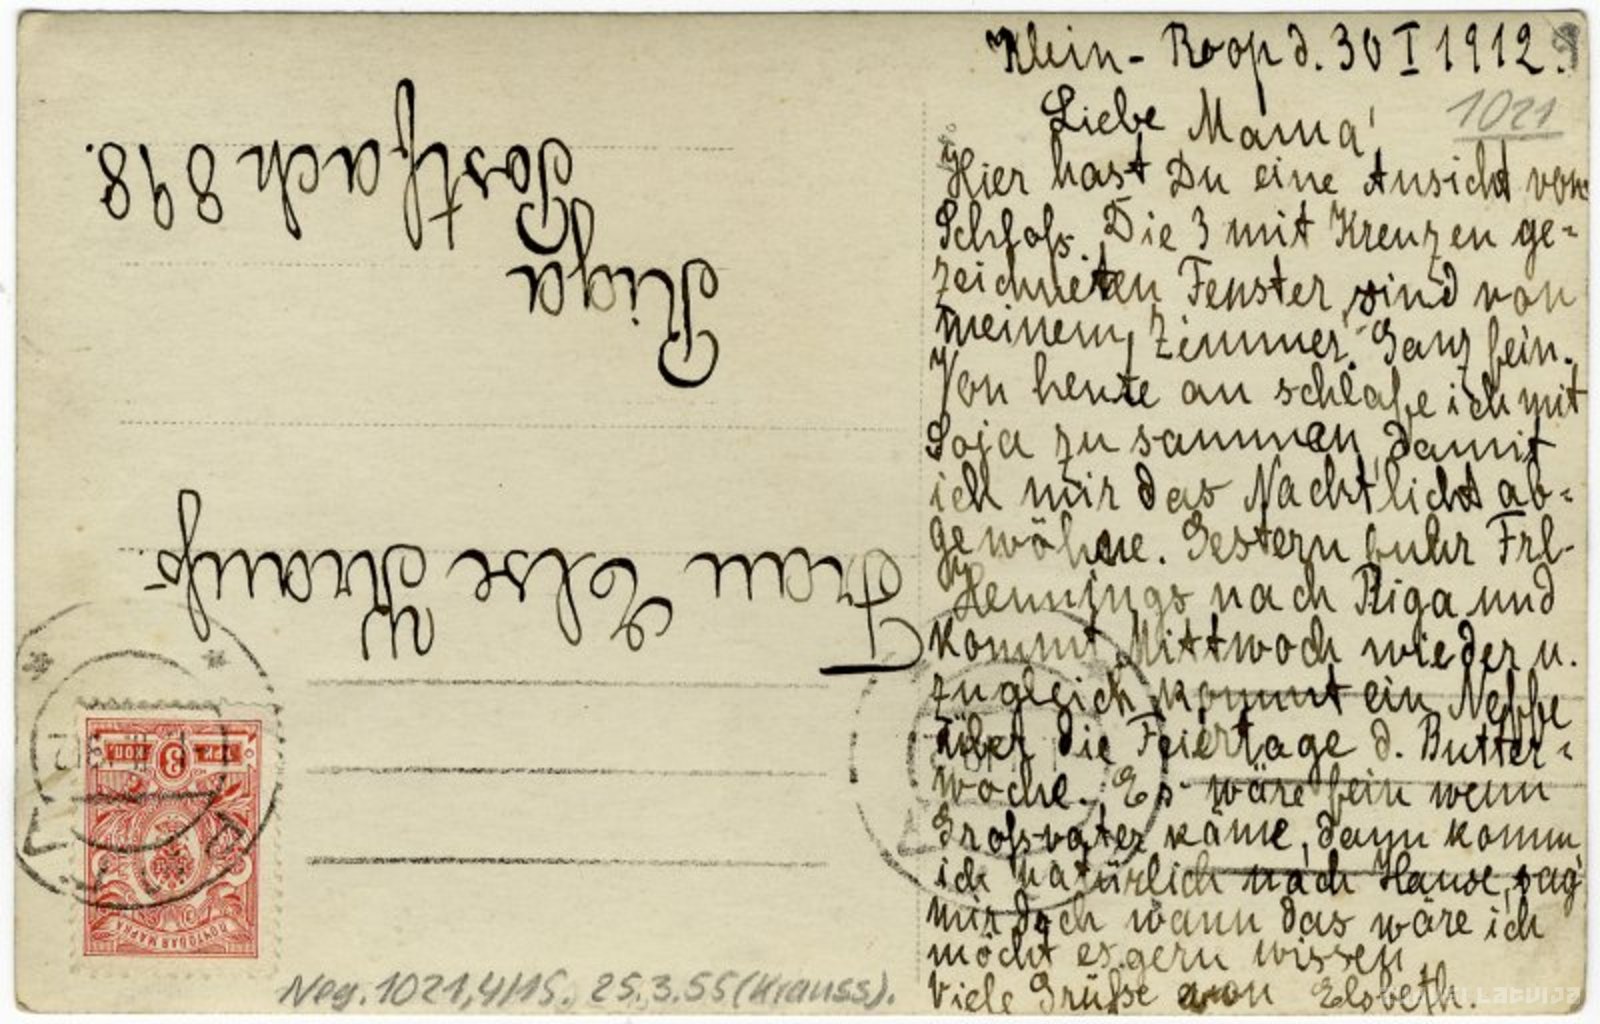 Klein-Roop d. 30 I 1912.
1021
Liebe Mama!
Hier hast Du eine Ansicht von
Schloß. Die 3 mit Kreuzen ge=
zeichneten Fenster sind von
meinem Zimmer. Ganz fein.
Von heute an schlafe ich mit
Soja zusammen, damit
ich mir das Nachtlicht ab=
gewöhne. Gestern fuhr Frl.
Hennings nach Riga und
kommt Mittwoch wieder u.
zugleich kommt ein Neffe
über die Feiertage d. Butter=
woche. Es wäre fein wenn
Großvater käme, dann komm
ich natürlich nach Hause, sag
mir doch wann das wäre ich
möcht es gern wissen
Viele Grüße von Elsbeth.
Frau Else Krauß.
Riga
Postfach 898.
3 КОП.
ПОЧТОВАЯ МАРКА
Neg. 1021,4/15. 25.3.55 (Krauss).